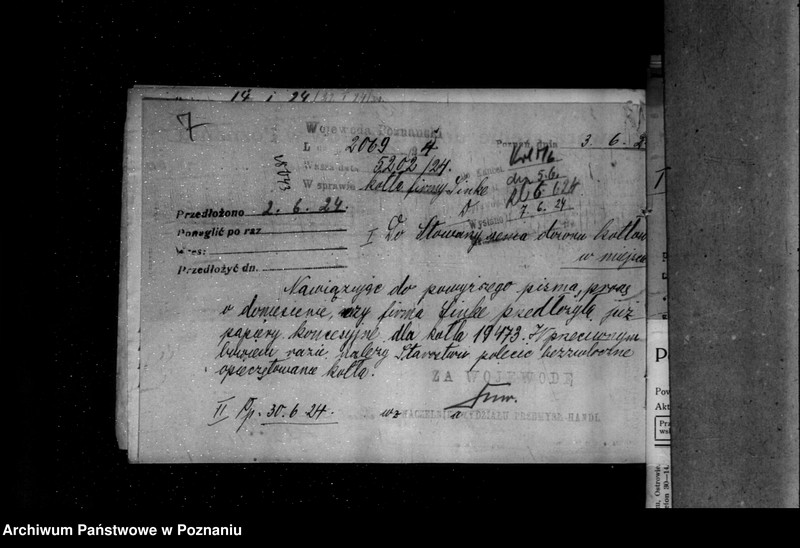 14 I 24
7
Wojewoda Poznański
Poznań, dnia 3. 6. 2
L 2069 /24
Wasza data 5202/24.
W sprawie kotła firmy Linke
18473
5.6.
Wysłano 7 6. 24
Przedłożono 2. 6. 24.
Ponaglić po raz
Kres:
Przedłożyć dn.
I Do Stowarzyszenia dozoru kotłów
w miejscu
Nawiązując do powyższego pisma, proszę
o doniesienie, czy firma Linke przedłożyła już
papiery koncesyjne dla kotła 19473. W przeciwnym
bowiem razie należy Starostwu polecić bezzwłoczne
opieczętowanie kotła.
ZA WOJEWODĘ
NACZELNIK WYDZIAŁU PRZEMYSŁU I HANDL
II Pp. 30. 6 24.
wz
P
Pow
Akt
Prz
wsk
m, Ostrowie.
30—14.
Archiwum Państwowe w Poznaniu